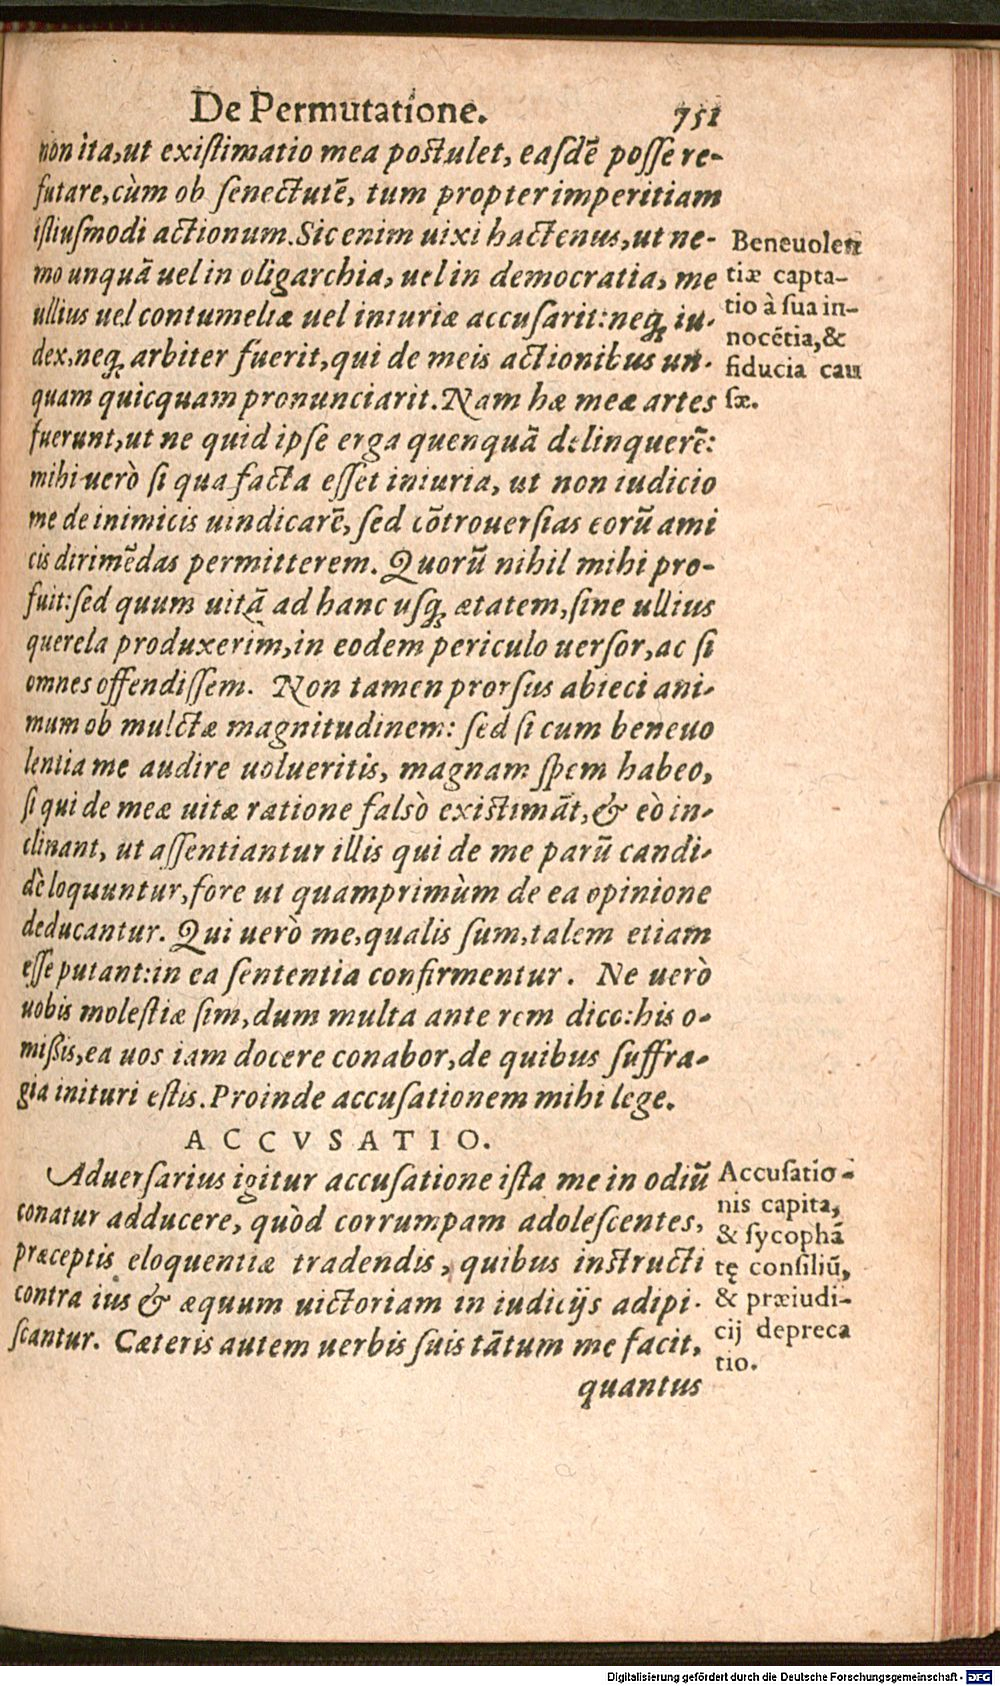 De Permutatione. 751
non ita, ut existimatio mea postulet, easdē posse re-
futare, cùm ob senectutē, tum propter imperitiam
istiusmodi actionum. Sic enim uixi hactenus, ut ne-
mo unquā uel in oligarchia, uel in democratia, me
ullius uel contumeliæ uel iniuriæ accusarit: neq; iu-
dex, neq; arbiter fuerit, qui de meis actionibus un-
quam quicquam pronunciarit. Nam hæ meæ artes
fuerunt, ut ne quid ipse erga quenquā delinquerē:
mihi uerò si qua facta esset iniuria, ut non iudicio
me de inimicis uindicarē, sed cōtrouersias eorū ami
cis dirimēdas permitterem. Quorū nihil mihi pro-
fuit: sed quum uitā ad hanc usq; ætatem, sine ullius
querela produxerim, in eodem periculo uersor, ac si
omnes offendissem. Non tamen prorsus abieci ani-
mum ob mulctæ magnitudinem: sed si cum beneuo
lentia me audire uolueritis, magnam spem habeo,
si qui de meæ uitæ ratione falsò existimāt, & eò in-
clinant, ut assentiantur illis qui de me parū candi-
dè loquuntur, fore ut quamprimùm de ea opinione
deducantur. Qui uerò me, qualis sum, talem etiam
esse putant: in ea sententia confirmentur. Ne uerò
uobis molestiæ sim, dum multa ante rem dico: his o-
mißis, ea uos iam docere conabor, de quibus suffra-
gia inituri estis. Proinde accusationem mihi lege.
ACCVSATIO.
Aduersarius igitur accusatione ista me in odiū
conatur adducere, quòd corrumpam adolescentes,
præceptis eloquentiæ tradendis, quibus instructi
contra ius & æquum uictoriam in iudicijs adipi-
scantur. Cæteris autem uerbis suis tātum me facit,
quantus
Beneuolen
tiæ capta-
tio à sua in-
nocētia, &
fiducia cau
sæ.
Accusatio-
nis capita,
& sycophā
tę consiliū,
& præiudi-
cij depreca
tio.
Digitalisierung gefördert durch die Deutsche Forschungsgemeinschaft - DFG